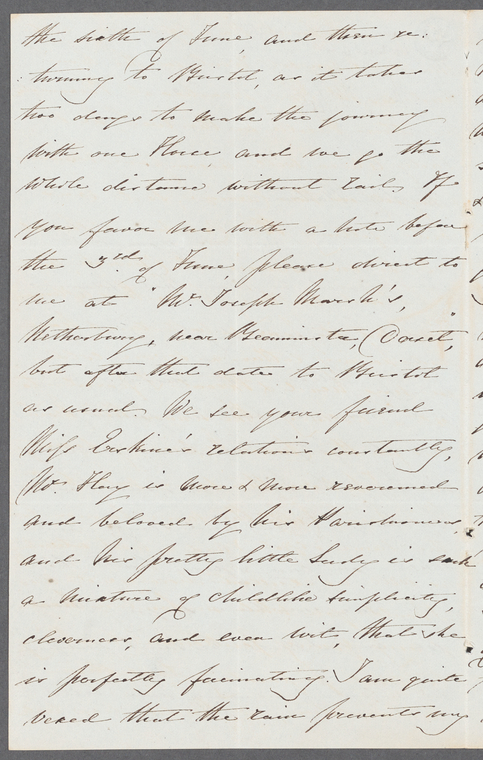 the sixth of June, and then re:
:turning to Bristol, as it takes
two days to make the journey
with one Horse, and we go the
whole distance without rail. If
you favor me with a note before
the 3rd of June, please direct to
me at "Mr. Joseph Marsh's,
Netherbury, near Beaminster, (Dorset,"
but after that date to Bristol
as usual. We see your friend
Miss Erskine's relations constantly,
Mr. Hay is more & more reverenced
and beloved by his Parishioners,
and his pretty little Lady is such
a mixture of childlike simplicity,
cleverness, and even wit, that she
is perfectly fascinating. I am quite
vexed that the rain prevents my